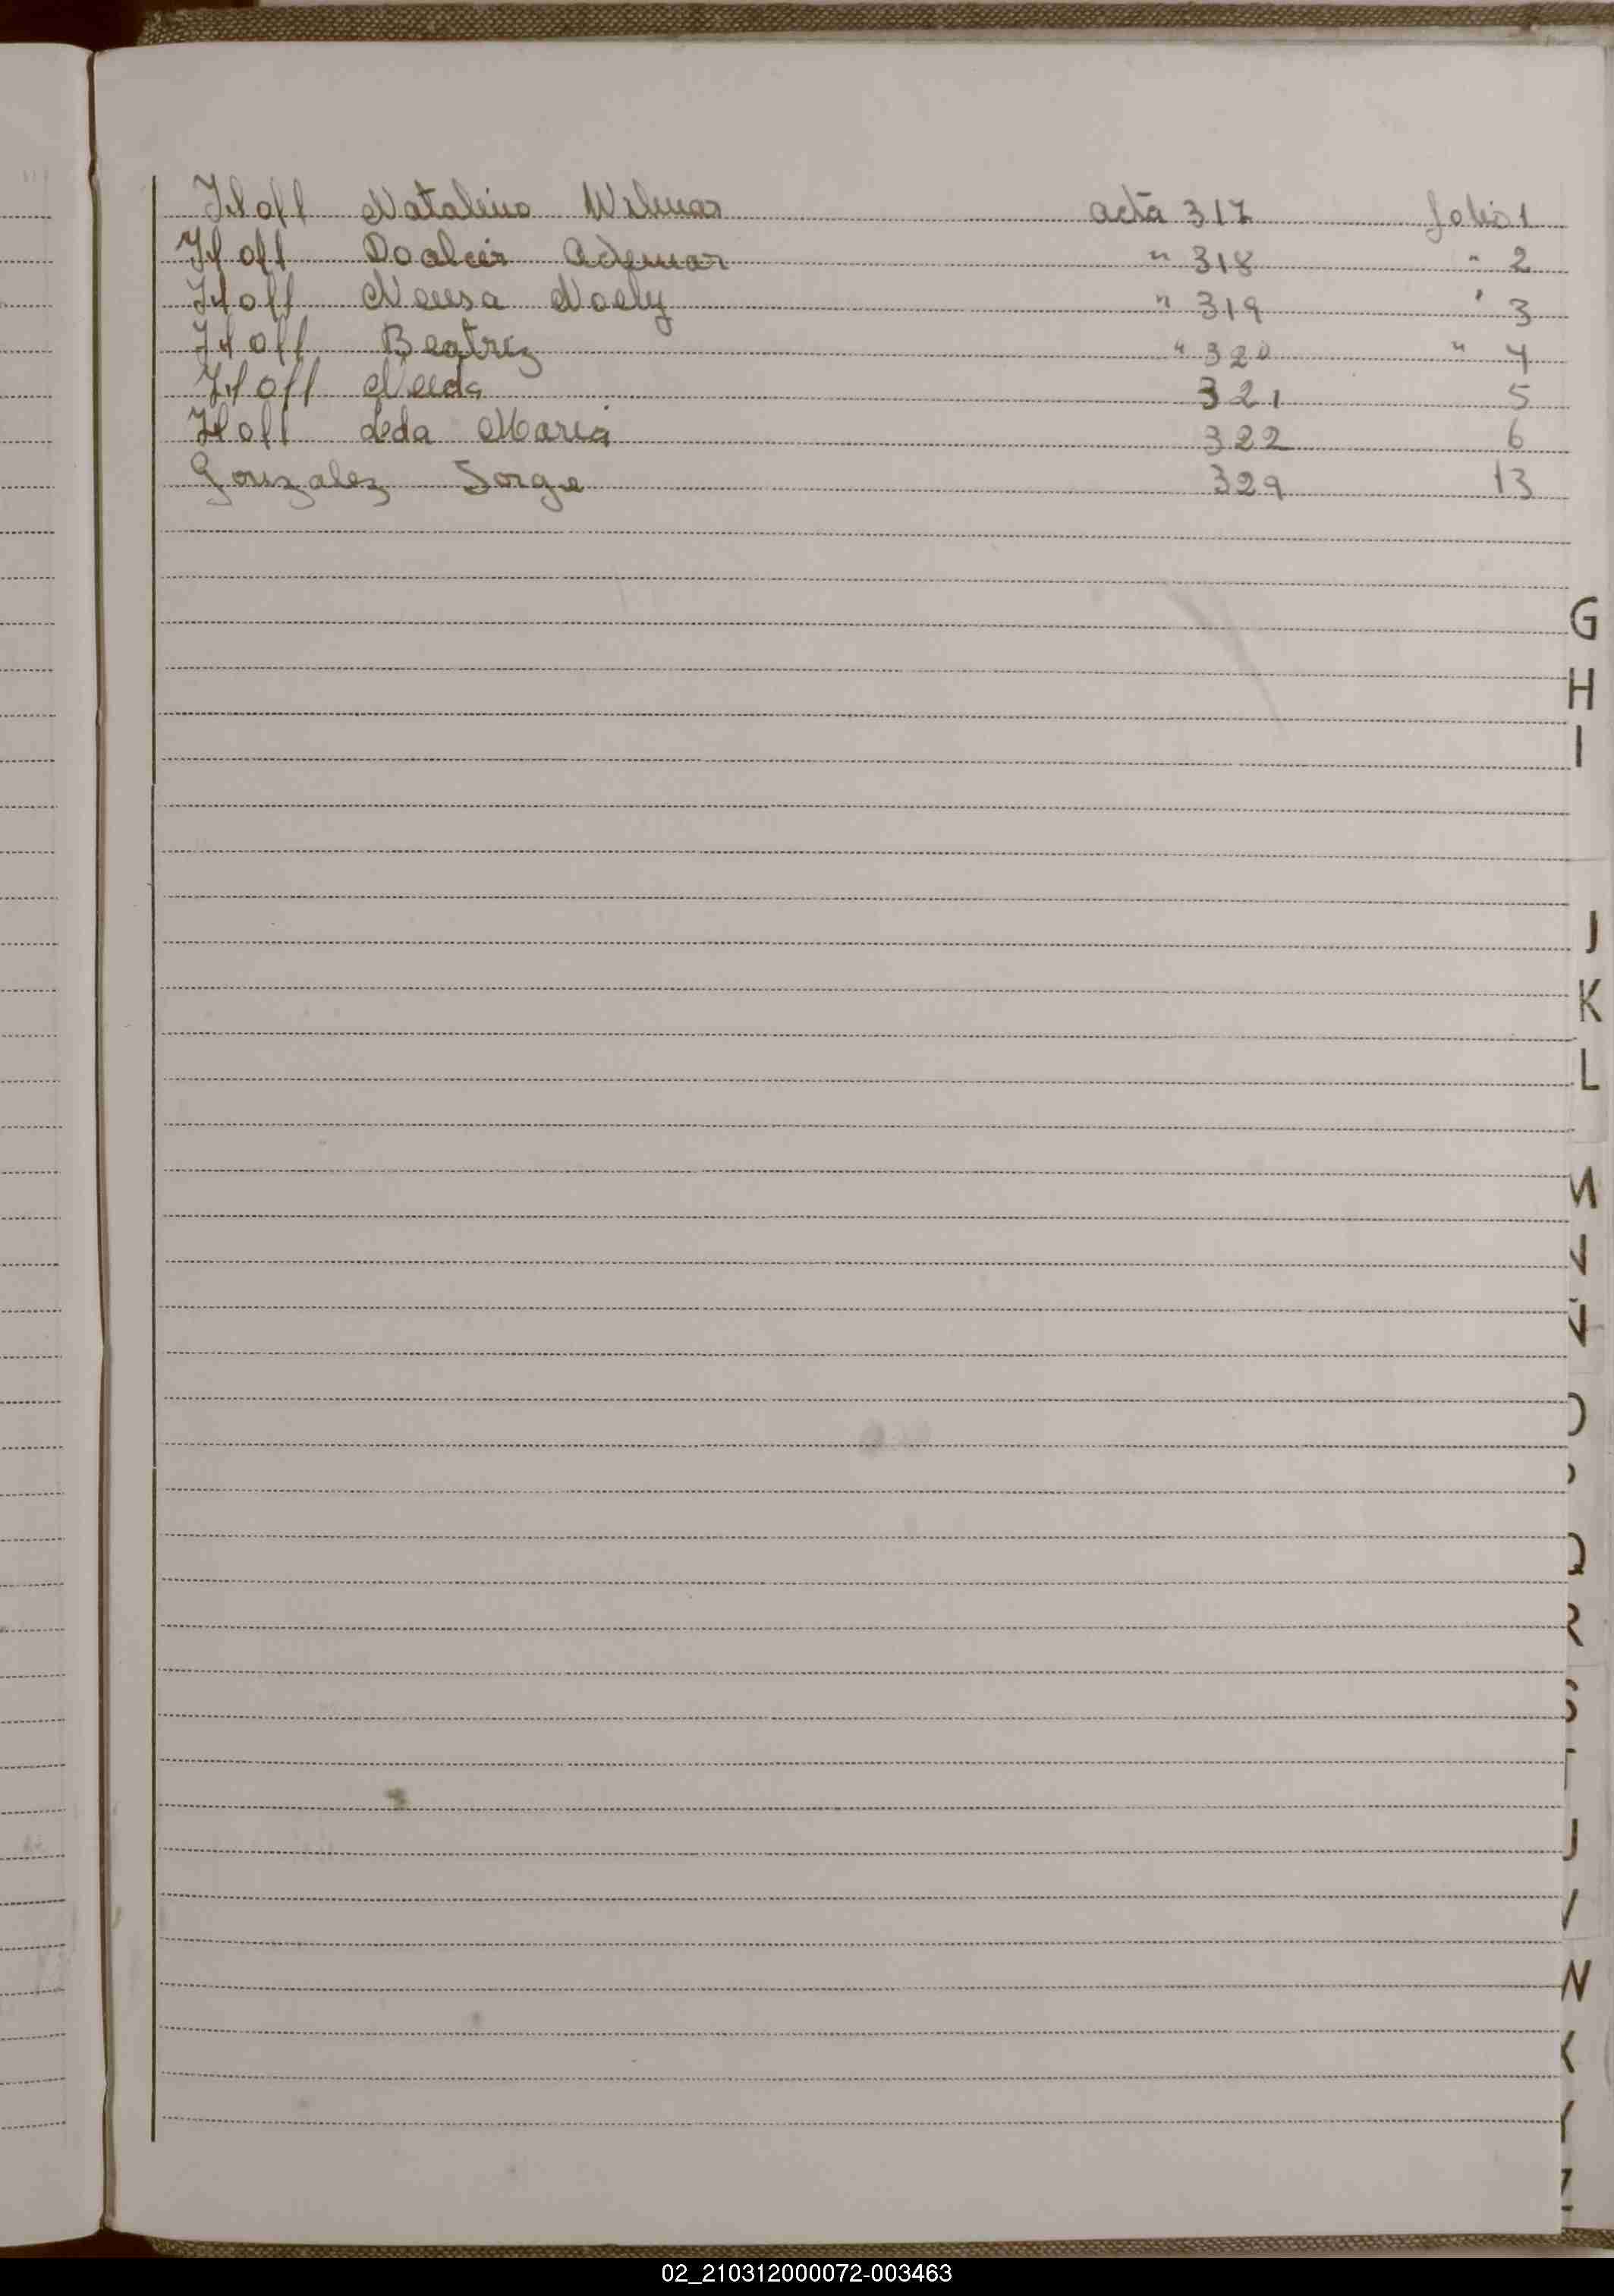 Hoff Natalino Wilmar acta 317 folio 1
Hoff Doalcir Ademar " 318 " 2
Hoff Neusa Noely " 319 " 3
Hoff Beatriz " 320 " 4
Hoff Neida 321 5
Hoff Leda Maria 322 6
Gonzalez Jorge 329 13
G
H
I
J
K
L
M
N
Ñ
O
P
Q
R
S
T
U
V
W
X
Y
Z
02_210312000072-003463